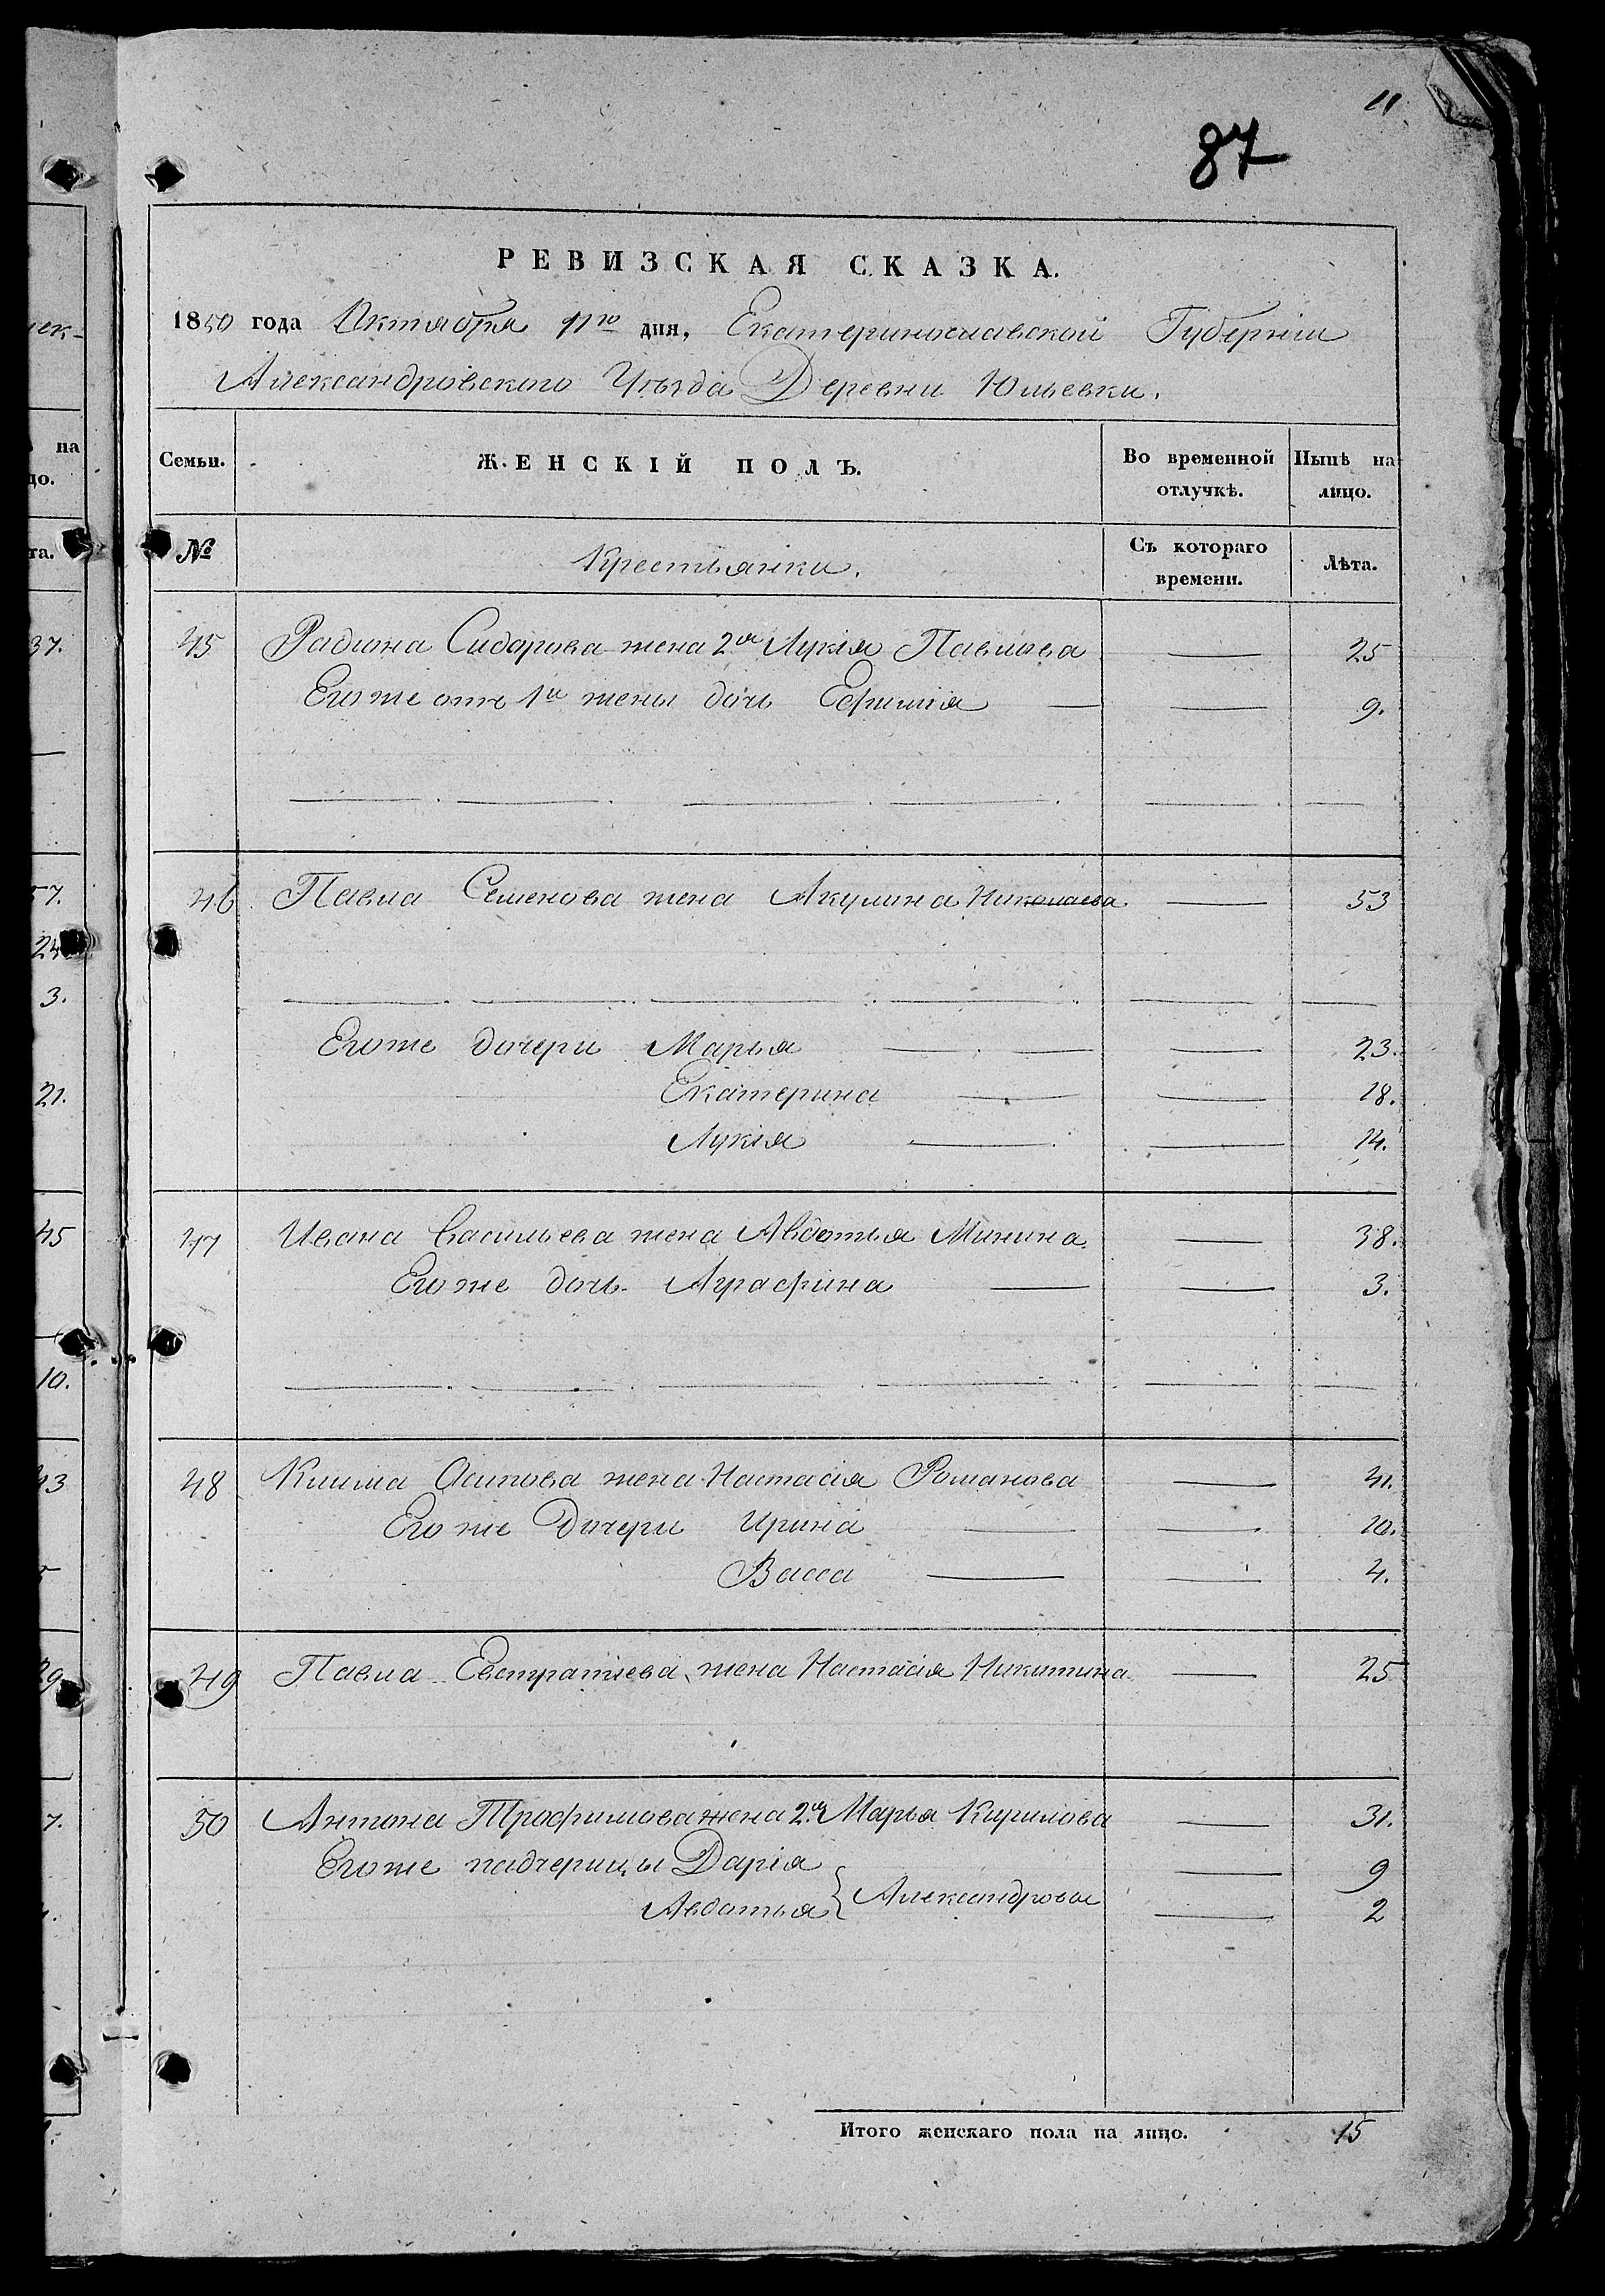 11
87
РЕВИЗСКАЯ СКАЗКА.
1850 года Октября 11го дня, Екатеринославской Губерніи
Александровского Уѣзда Деревни Юльевки.
на
Семьи. ЖЕНСКІЙ ПОЛЪ. Во временной отлучкѣ. Нынѣ на лицо.
№ Крестьянки. Съ котораго времени. Лѣта.
45 Радиона Сидорова жена 2я Лукія Павлова — 25
Его же отъ 1й жены дочь Ефимія — — 9.
46 Павла Семенова жена Акулина Николаева — 53
Его же дочери Марья — — — 23.
Екатерина — — 18.
Лукія — — 14.
47 Ивана Васильева жена Авдотья Минина — 38.
Его же дочь Аграфина — — 3.
48 Клима Осипова жена Настасія Романова — 41.
Его же Дочери Ирина — — 10.
Васса — — 4.
49 Павла Евстратіева жена Настасія Никитина — 25
50 Антона Трофимова жена 2я Марья Кирилова — 31.
Его же падчерицы Дарія — 9
Авдотья } Александровы — 2
Итого женскаго пола на лицо. 15